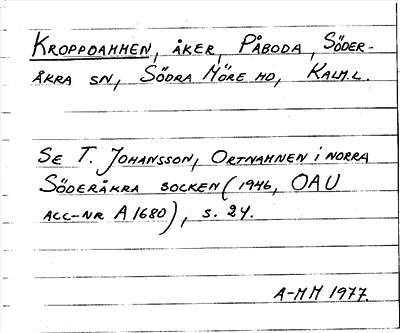 KROPPDAMMEN, ÅKER, PÅBODA, SÖDER-
ÅKRA SN, SÖDRA MÖRE HD, KALM.L.
SE T. JOHANSSON, ORTNAMNEN i NORRA
SÖDERÅKRA SOCKEN (1946, OAU
ACC-NR A1680), S. 24.
A-MM 1977.